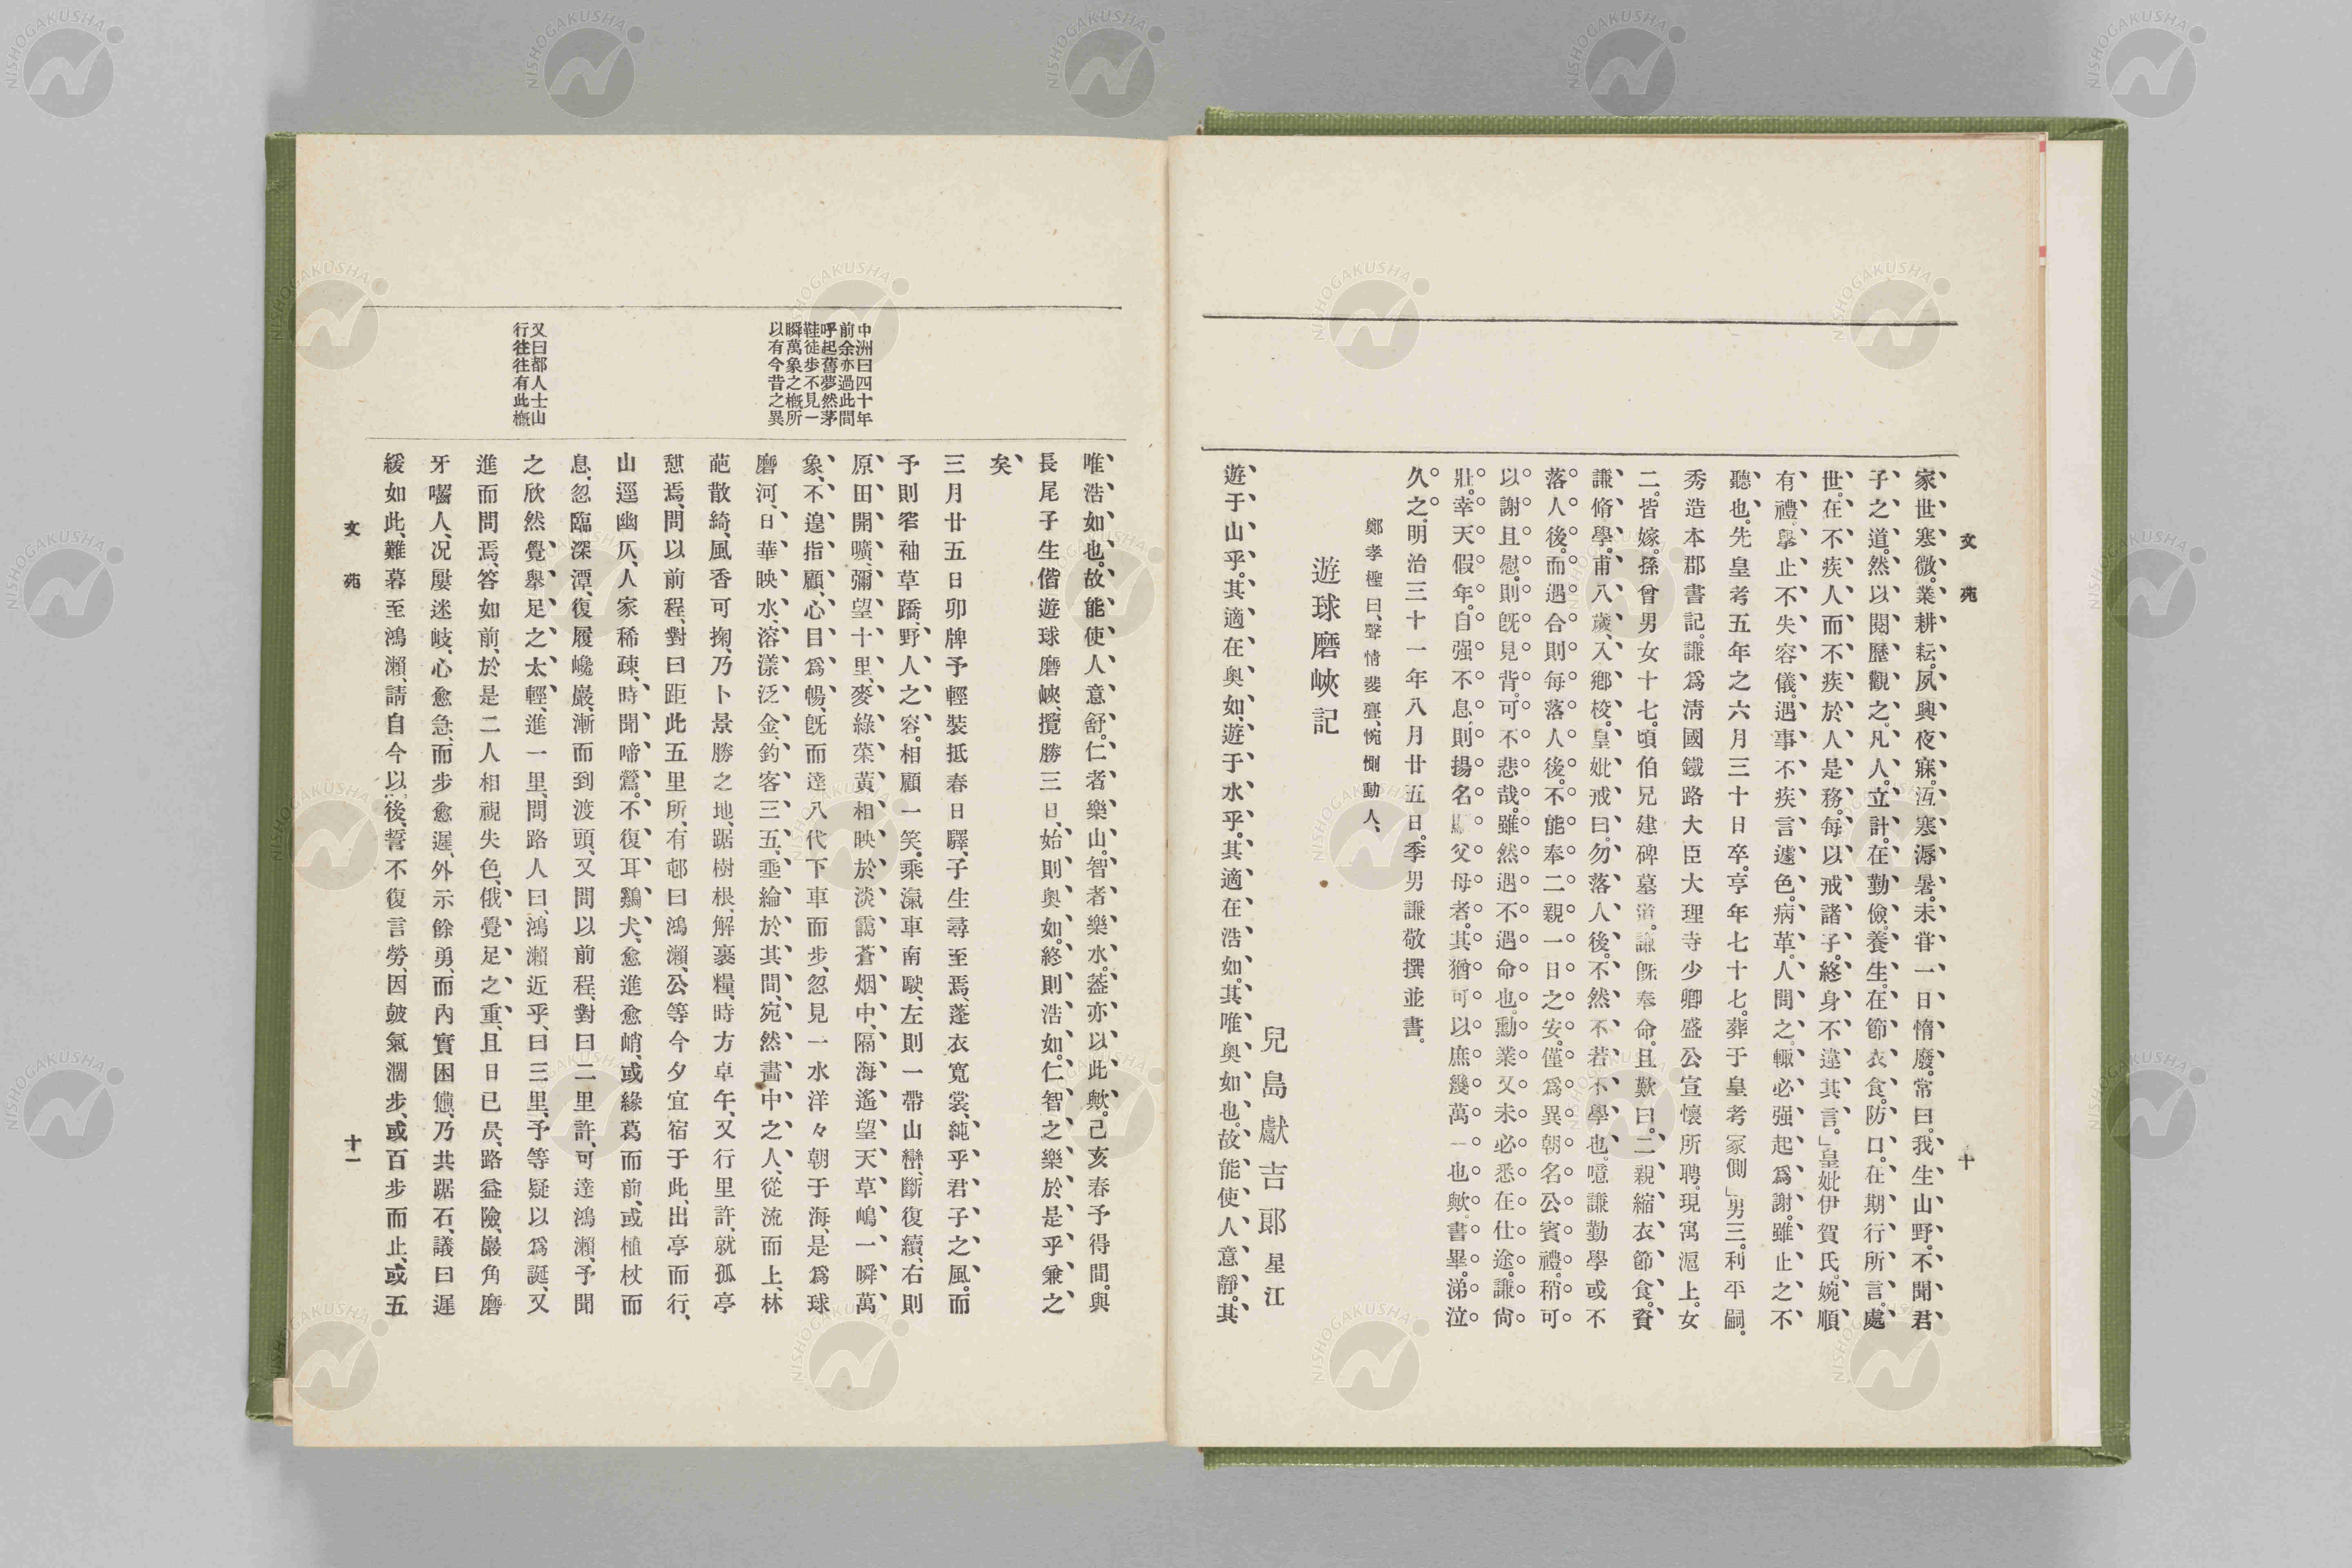 文苑
十
家世寒微。業耕耘。夙興夜寐。沍寒溽暑。未甞一日惰廢。常曰。我生山野。不聞君
子之道。然以閱歷觀之。凡人。立計。在勤儉。養生。在節衣食。防口。在期行所言。處
世。在不疾人而不疾於人是務。每以戒諸子。終身不違其言。」皇妣伊賀氏。婉順
有禮。擧止不失容儀。遇事不疾言遽色。病革。人問之。輒必强起爲謝。雖止之不
聽也。先皇考五年之六月三十日卒。享年七十七。葬于皇考冢側」男三。利平嗣。
秀造本郡書記。謙爲淸國鐵路大臣大理寺少卿盛公宣懷所聘。現寓滬上。女
二。皆嫁。孫曾男女十七。頃伯兄建碑墓道。謙旣奉命。且歎曰。二親縮衣節食。資
謙脩學。甫八歲、入鄕校。皇妣戒曰。勿落人後。不然不若不學也。噫謙勤學或不
落人後。而遇合則每落人後。不能奉二親一日之安。僅爲異朝名公賓禮。稍可
以謝且慰。則旣見背。可不悲哉。雖然遇不遇命也。勳業又未必悉在仕途。謙尙
壯。幸天假年。自强不息、則揚名顯父母者。其猶可以庶幾萬一也歟。書畢。涕泣
久之。明治三十一年八月廿五日。季男謙敬撰並書。
鄭孝檉曰、聲情斐亹、惋惻動人、
遊球磨峽記
兒島獻吉郞 星江
遊于山乎。其適在奥如、遊于水乎。其適在浩如。其唯奥如也。故能使人意靜。其
唯浩如也。故能使人意舒。仁者樂山。智者樂水。葢亦以此歟。己亥春予得間。與
長尾子生偕遊球磨峽、攬勝三日、始則奥如。終則浩如。仁智之樂於是乎兼之
矣
三月廿五日卯牌予輕裝抵春日驛、子生尋至焉、蓬衣寬裳、純乎君子之風。而
予則窄袖草蹻、野人之容。相顧一笑。乘滊車南駛、左則一帶山巒、斷復續、右則
原田開曠、彌望十里、麥綠菜黃相映於淡靄蒼烟中、隔海遙望天草嶋、一瞬萬
象、不遑指顧、心目爲暢、旣而達八代下車而步、忽見一水洋々朝于海、是爲球
磨河、日華映水、溶漾泛金、釣客三五、垂綸於其間、宛然畵中之人、從流而上、林
葩散綺、風香可掬、乃卜景勝之地、踞樹根、解裹糧、時方卓午、又行里許、就孤亭
憇焉、問以前程、對曰距此五里所、有邨曰鴻瀨、公等今夕宜宿于此、出亭而行、
山逕幽仄、人家稀疎、時聞啼鶯。不復耳鷄犬、愈進愈峭、或緣葛而前、或植杖而
息、忽臨深潭、復履巉巖、漸而到渡頭、又問以前程、對曰二里許、可達鴻瀨、予聞
之欣然覺擧足之太輕、進一里、問路人曰、鴻瀨近乎、曰三里、予等疑以爲誕、又
進而問焉、答如前、於是二人相視失色、俄覺足之重、且日已昃、路益險、巖角磨
牙囓人、况屢迷岐、心愈急、而步愈遲、外示餘勇、而內實困憊、乃共踞石、議曰遲
緩如此、難暮至鴻瀨、請自今以後、誓不復言勞、因皷氣濶步、或百步而止、或五
中洲曰四十年
前余亦過此間
呼起舊夢然茅
鞋徒步不見一
瞬萬象之槪所
以有今昔之異
又曰都人士山
行往往有此槪
文苑
十一